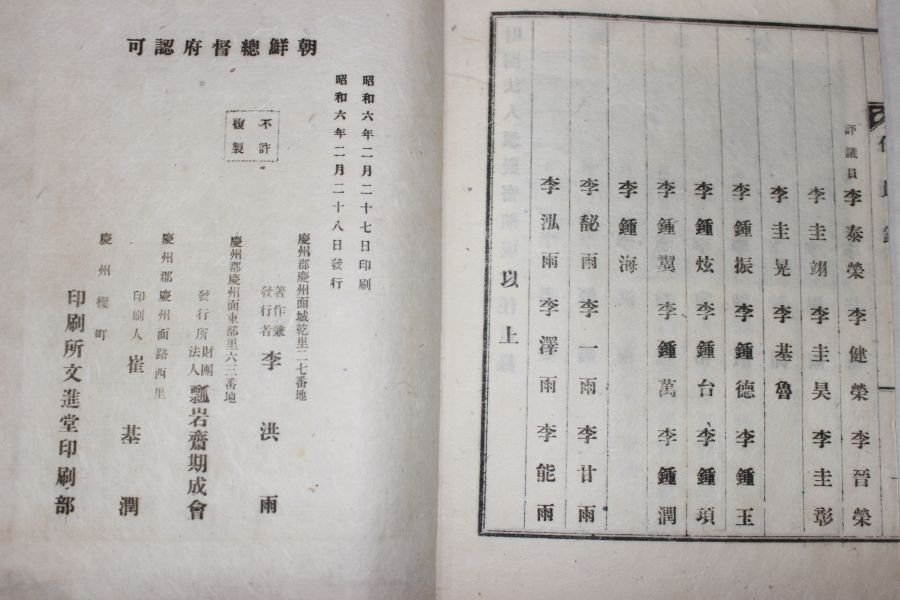 評議員 李泰榮 李健榮 李晉榮
李圭翊 李圭昊 李圭彰
李圭晃 李基魯
李鍾振 李鍾德 李鍾玉
李鍾炫 李鍾台 李鍾項
李鍾翼 李鍾萬 李鍾潤
李鍾海
李馝雨 李一雨 李甘雨
李泓雨 李澤雨 李能雨
以上
朝鮮總督府認可
昭和六年二月二十七日印刷
昭和六年二月二十八日發行
不許
複製
慶州郡慶州面城乾里二七番地
著作兼
發行者 李洪雨
慶州郡慶州面東部里六三番地
發行所 財團法人 瓢岩齋期成會
慶州郡慶州面路西里
印刷人 崔基潤
慶州櫻町
印刷所文進堂印刷部